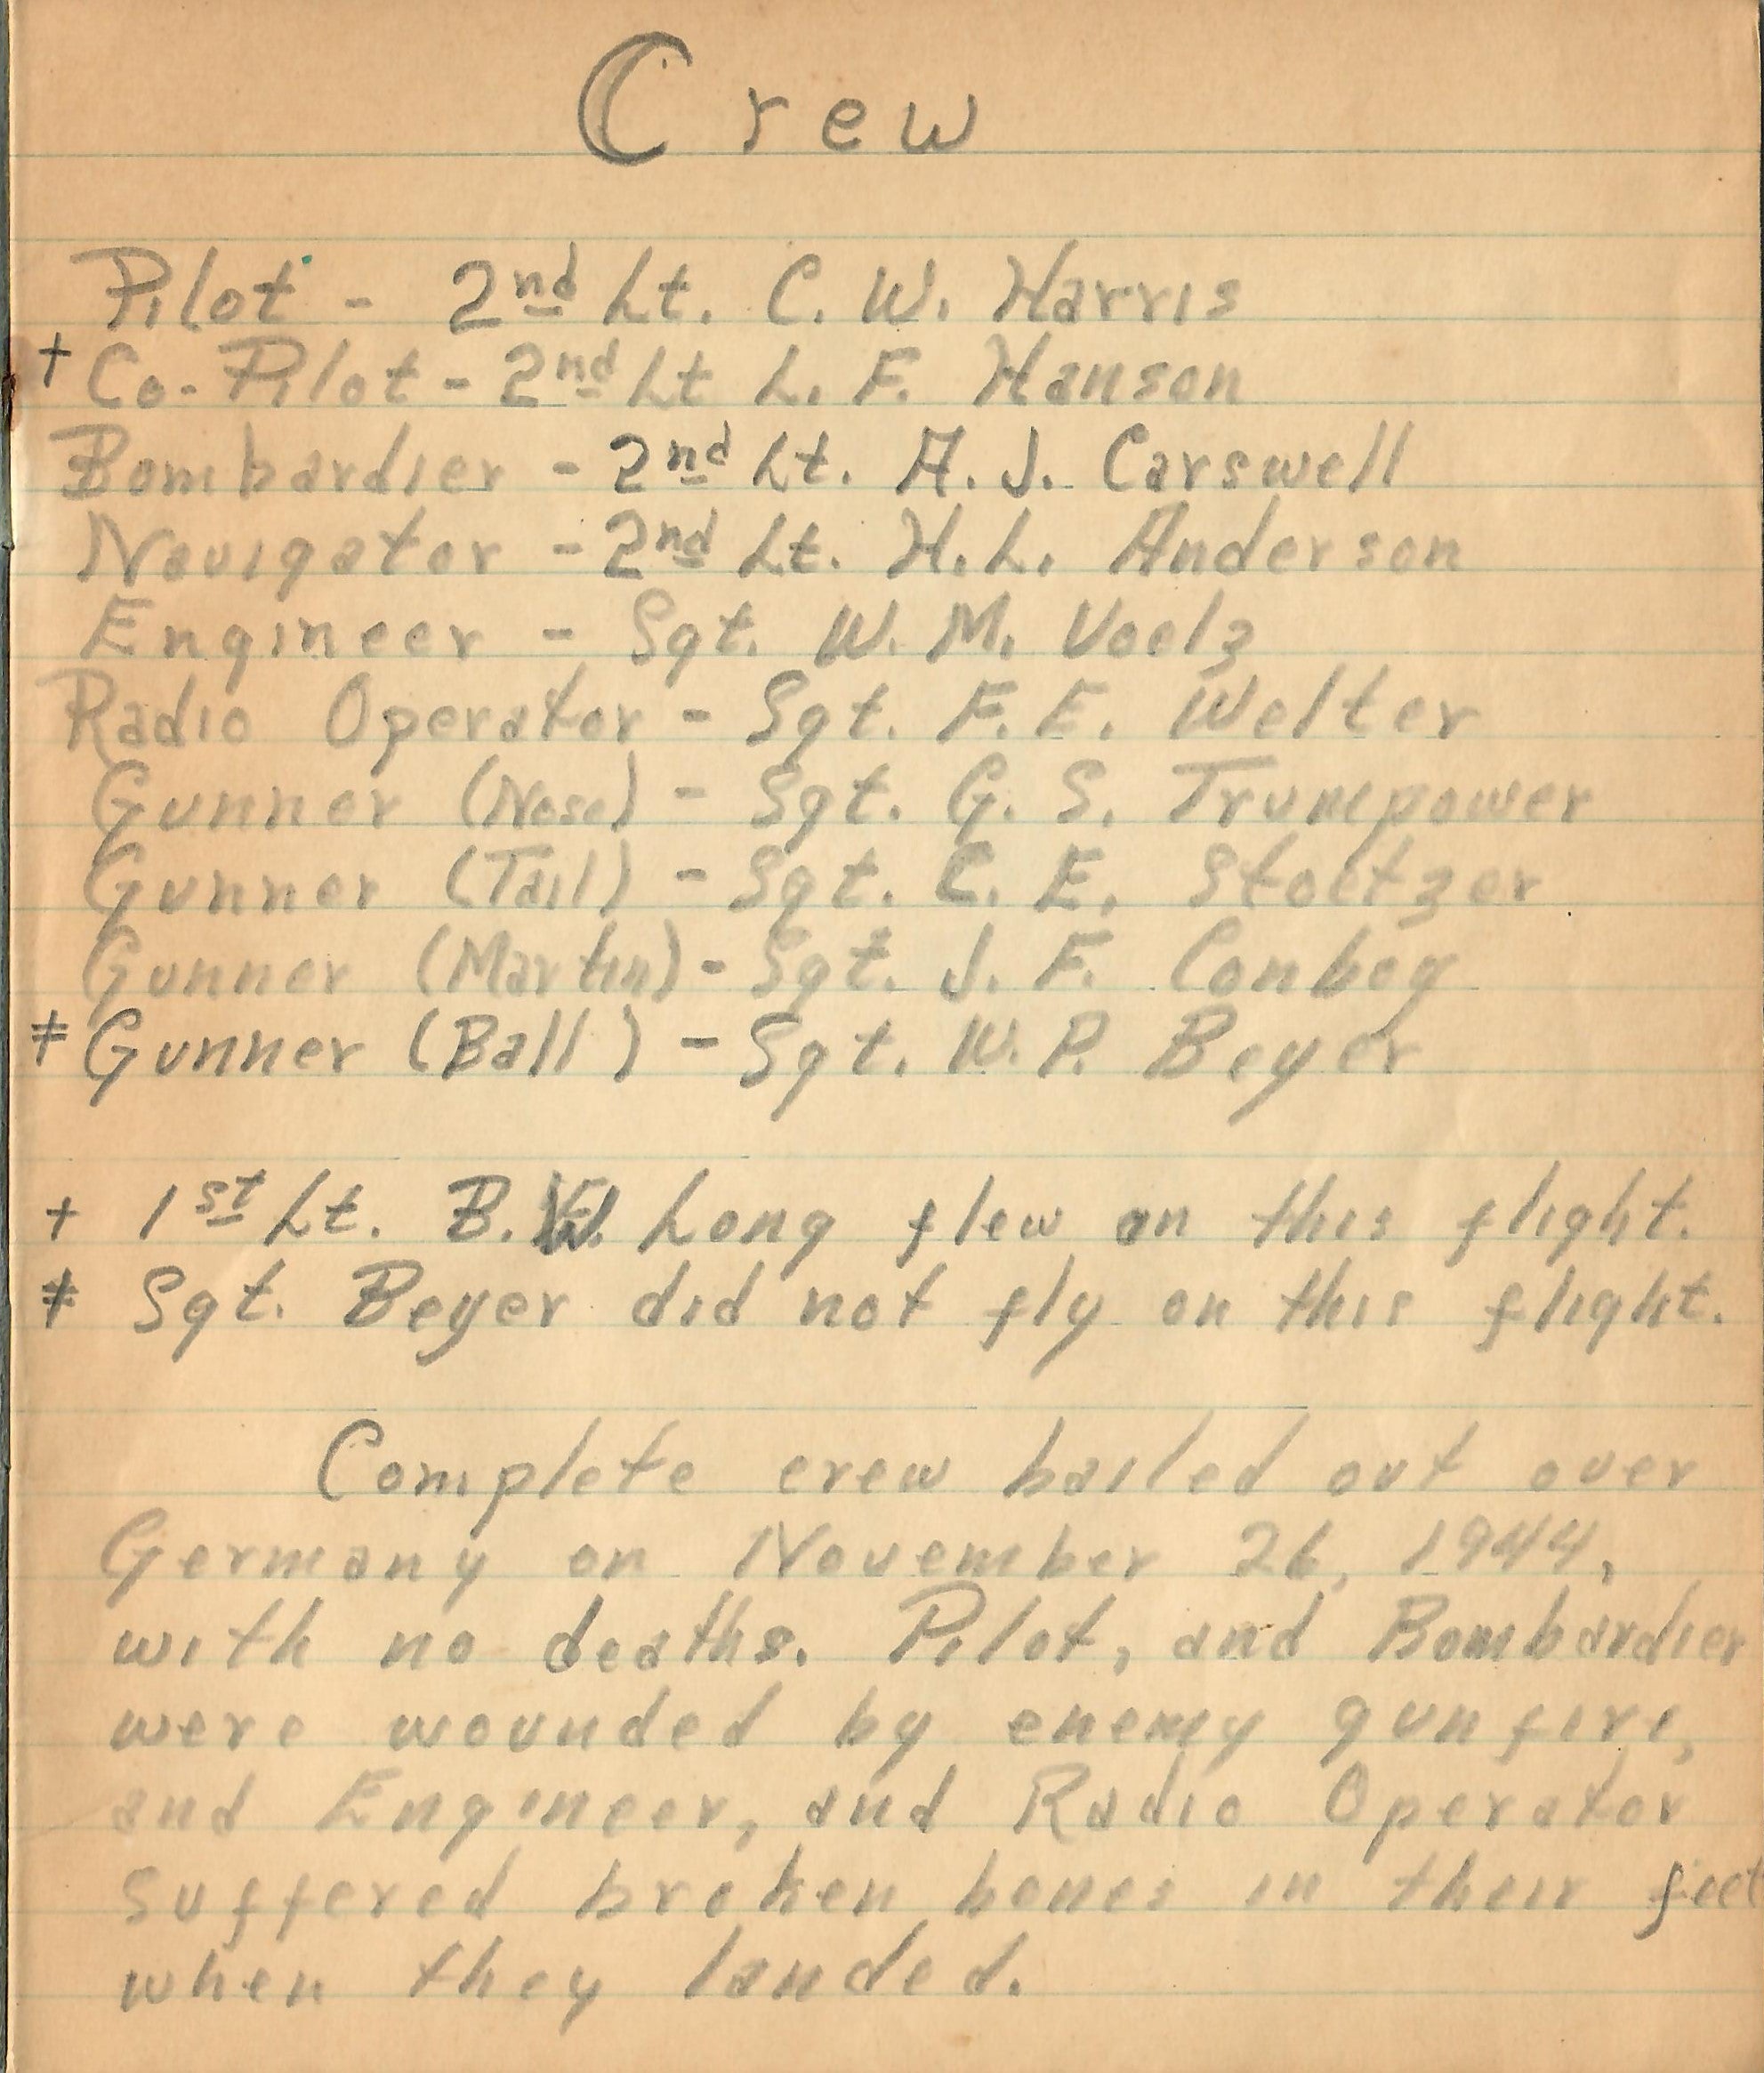 Crew
Pilot - 2nd Lt. C. W. Harris
+ Co-Pilot - 2nd Lt L. F. Hanson
Bombardier - 2nd Lt. A. J. Carswell
Navigator - 2nd Lt. H. L. Anderson
Engineer - Sgt. W. M. Voelz
Radio Operator - Sgt. F. E. Welter
Gunner (Nose) - Sgt. G. S. Trumpower
Gunner (Tail) - Sgt. C. E. Stoetzer
Gunner (Martin) - Sgt. J. F. Conboy
≠ Gunner (Ball) - Sgt. W. P. Beyer
+ 1st Lt. B. W. Long flew on this flight.
≠ Sgt. Beyer did not fly on this flight.
Complete crew bailed out over
Germany on November 26, 1944,
with no deaths. Pilot, and Bombardier
were wounded by enemy gunfire,
and Engineer, and Radio Operator
suffered broken bones in their feet
when they landed.